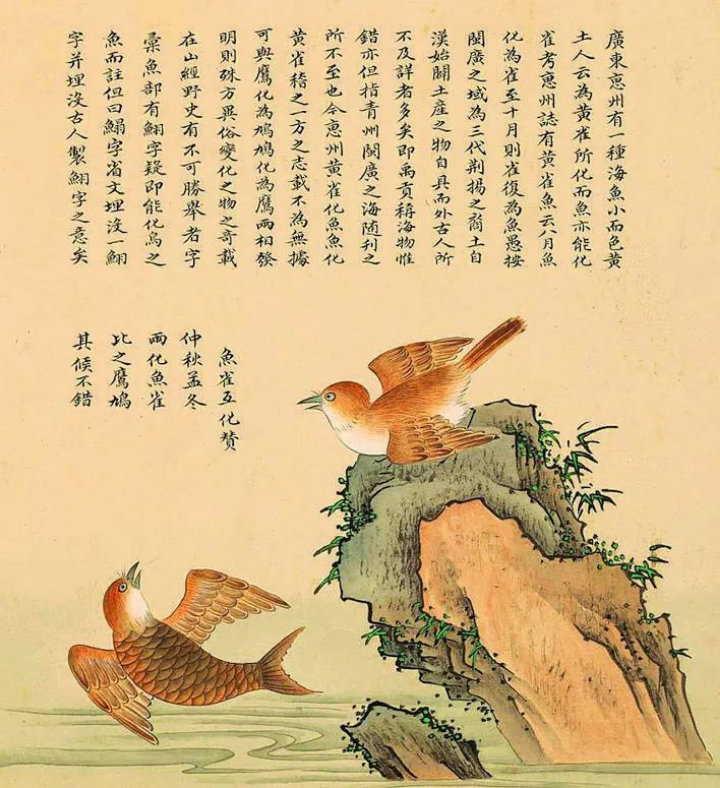 廣東惠州有一種海魚小而色黃
土人云為黃雀所化而魚亦能化
雀考惠州誌有黃雀魚云八月魚
化為雀至十月則雀復為魚愚按
閩廣之域為三代荆揚之裔土自
漢始闢土產之物自具而外古人所
不及詳者多矣即禹貢稱海物惟
錯亦但指青州閩廣之海隨刋之
所不至也今惠州黃雀化魚魚化
黃雀稽之一方之志載不為無據
可與鷹化為鳩鳩化為鷹兩相發
明則殊方異俗變化之物之奇載
在山經野史有不可勝舉者字
彙魚部有字疑即能化鳥之
魚而註但曰鰨字省文埋沒一
字并埋沒古人製字之意矣
魚雀互化贊
仲秋孟冬
兩化魚雀
比之鷹鳩
其候不錯